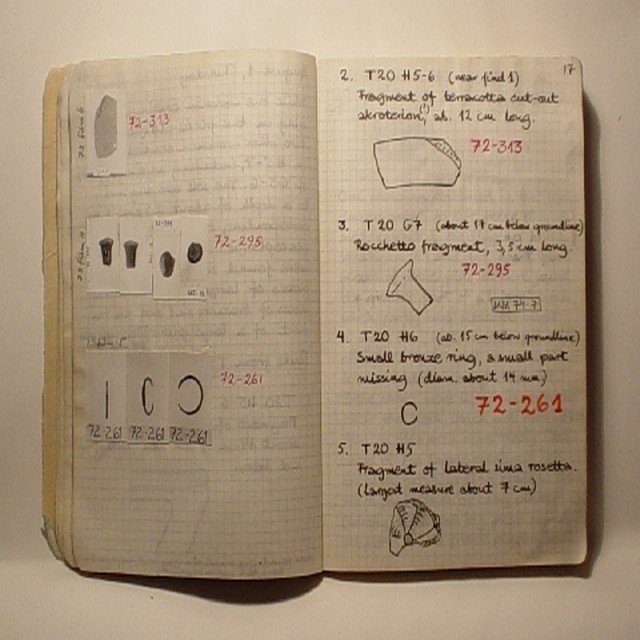 72-313
72-295
72-261
72-261 72-261 72-261
17
2. T20 H5-6 (near find 1)
Fragment of terracotta cut-out
akroterion(?), ab. 12 cm long.
72-313
3. T20 G7 (about 17 cm below groundline)
Rocchetto fragment, 3,5 cm long.
72-295
4. T20 H6 (ab. 15 cm below groundline)
Small bronze ring, a small part
missing (diam. about 14 mm)
72-261
5. T20 H5
Fragment of lateral sima rosetta.
(Largest measure about 7 cm)